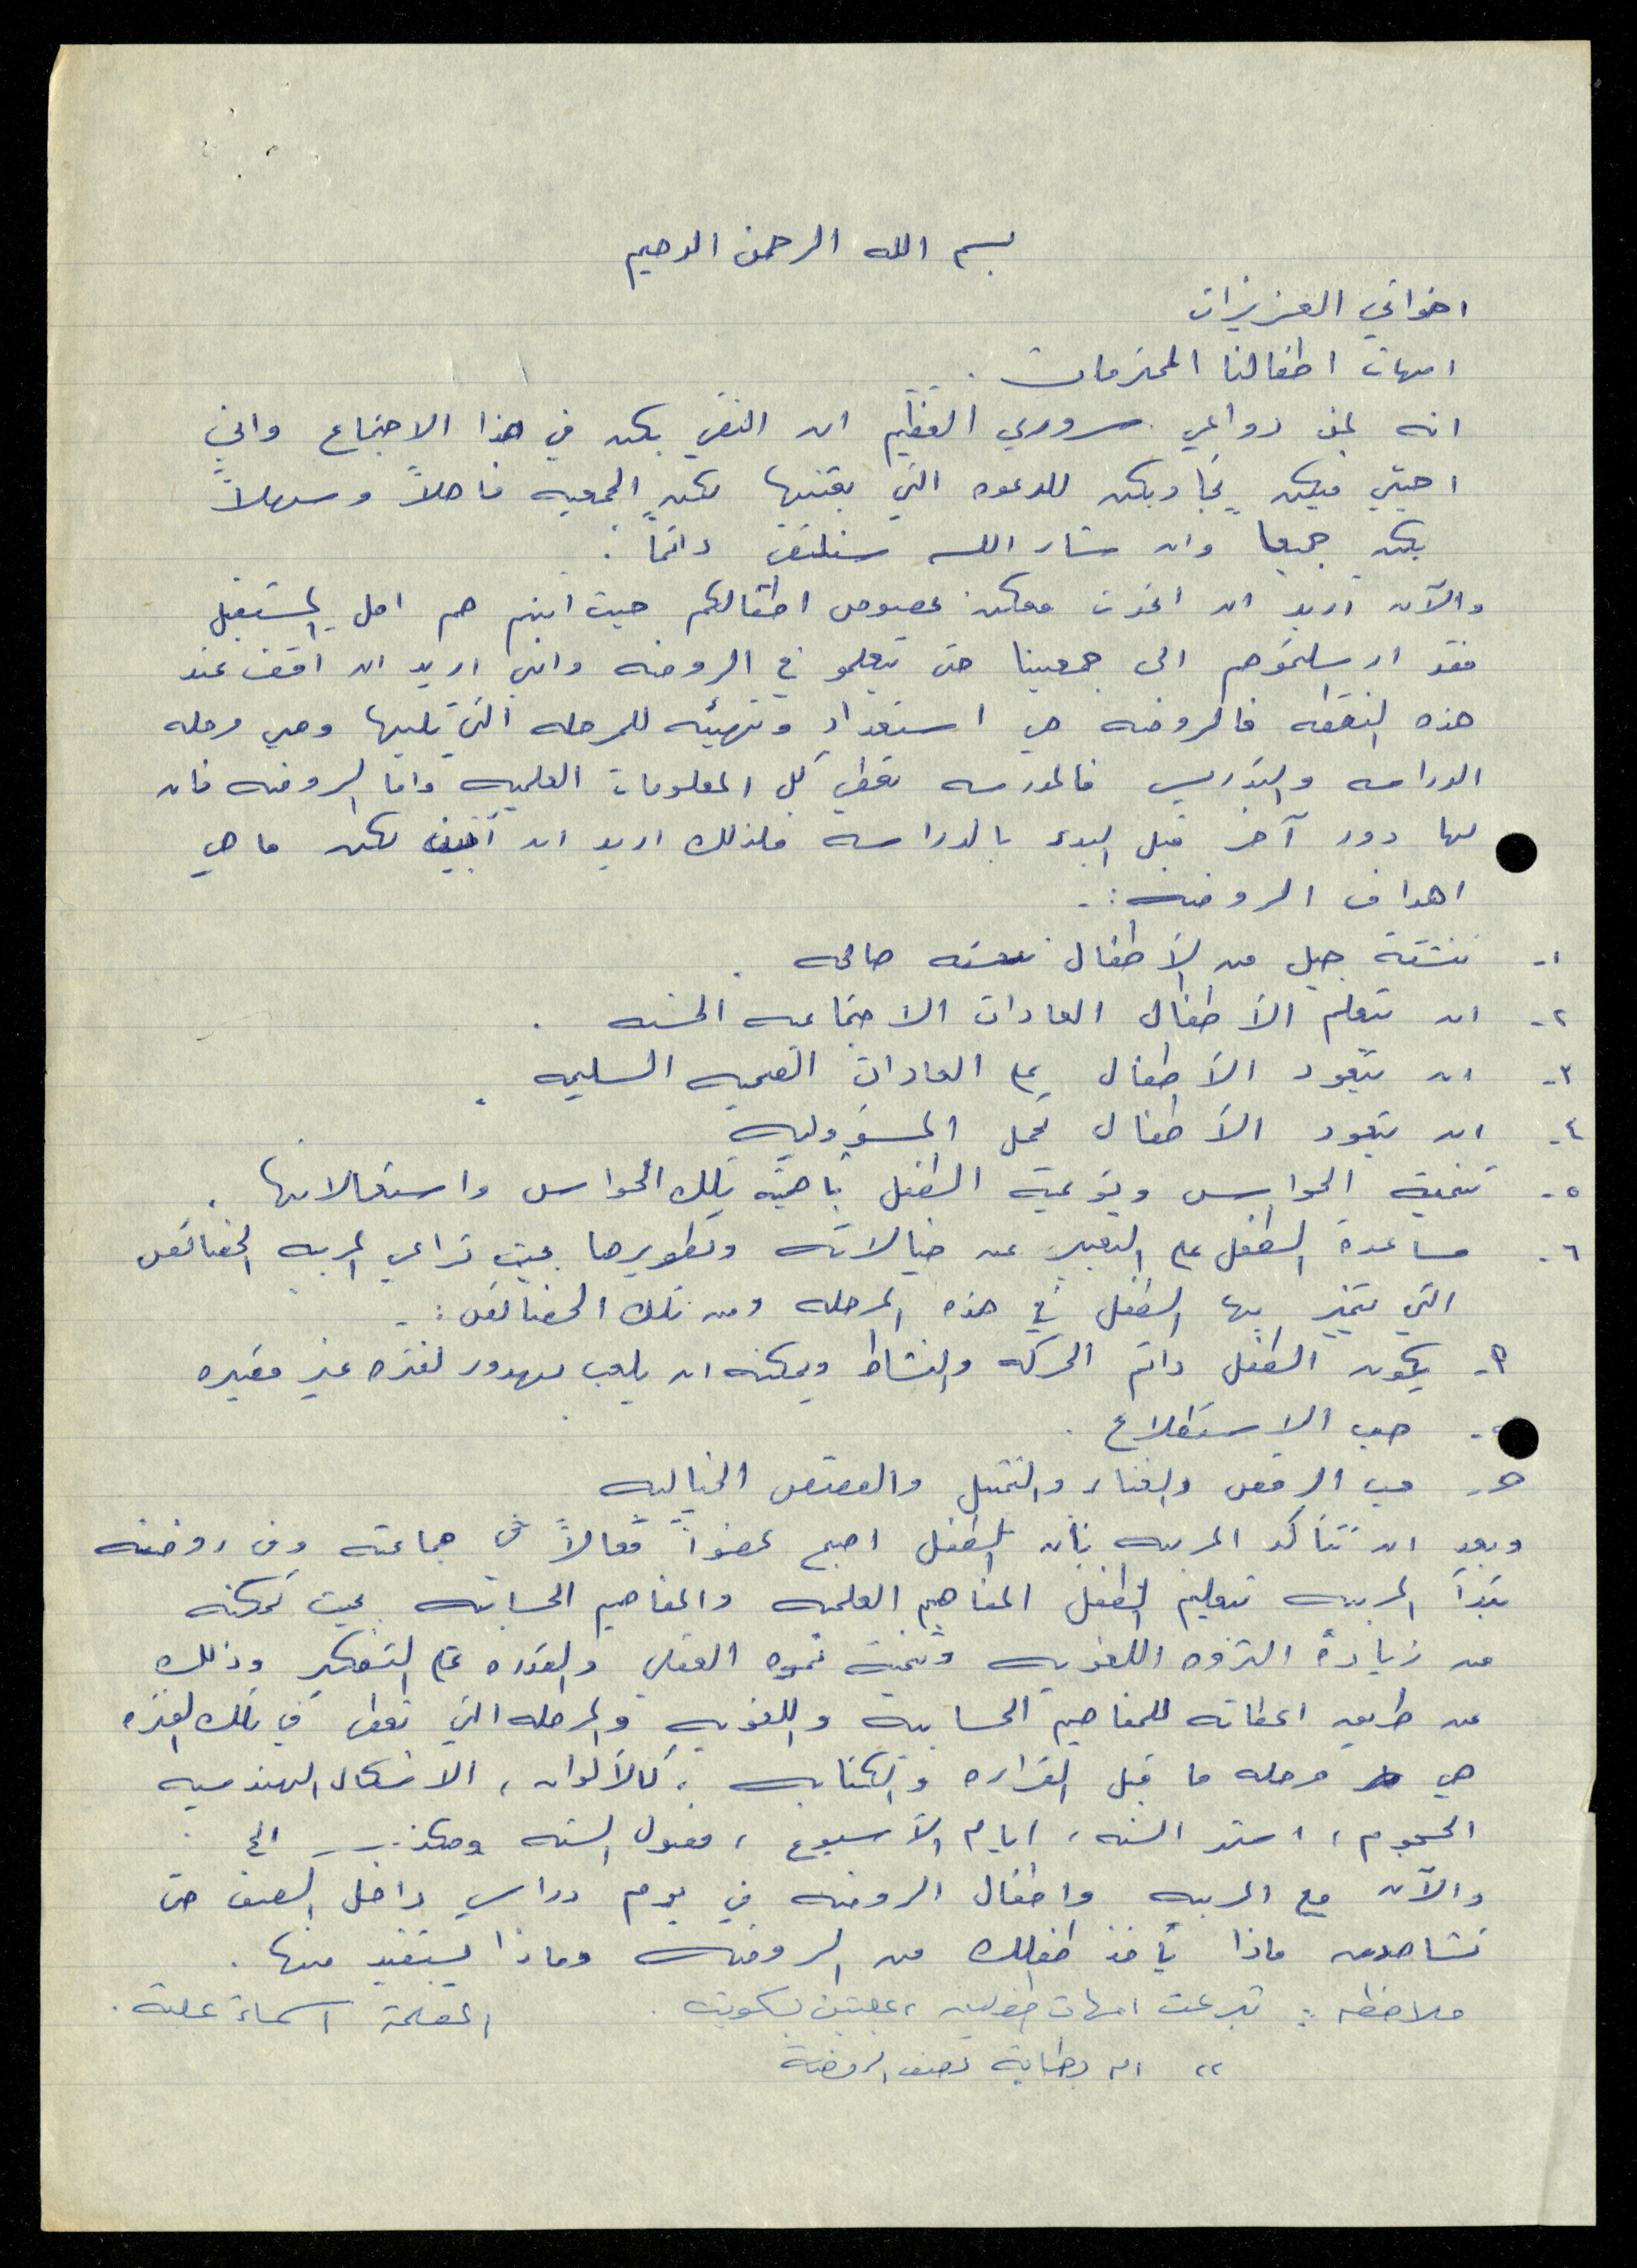 بسم الله الرحمن الرحيم
اخواتي العزيزات
امهات اطفالنا المحترمات .
انه لمن دواعي سروري العظيم ان التقي بكن في هذا الاجتماع واني
احيي فيكن تجاوبكن للدعوه التي بعثتها لكن الجمعيه فاهلاً وسهلاً
بكن جميعا وان شاء الله سنلتقي دائماً .
والآن اريد ان اتحدث معكن بخصوص اطفالكم حيث انهم هم امل المستقبل
فقد ارسلتموهم الى جمعيتنا حتى يتعلمو في الروضه وانني اريد ان اقف عند
هذه النقطه فالروضه هي استعداد وتهيئه للمرحله التي تليها وهي مرحله
الدراسه والتدريس فالمدرسه تعطي كل المعلومات العلميه واما الروضه فان
لها دور آخر قبل البدء بالدراسه فلذلك اريد ان أبين لكن ما هي
اهداف الروضه :-
١- تنشئة جيل من الأطفال تنشئه صالحه .
٢- ان يتعلم الأطفال العادات الاجتماعيه الحسنه .
٣- ان يتعود الأطفال على العادات الصحيه السليمه .
٤- ان يتعود الأطفال تحمل المسؤوليه
٥- تنمية الحواس وتوعية الطفل بأهمية تلك الحواس واستعمالاتها .
٦- مساعدة الطفل على التعبير عن خيالاته وتطويرها بحيث تراعي المربيه الخصائص
التي يتميز بها الطفل في هذه المرحله ومن تلك الخصائص :-
٢- يكون الطفل دائم الحركه والنشاط ويمكنه ان يلعب بهدوء لفتره غير قصيره
- حب الاستطلاع .
ح- حب الرقص والغناء والتمثيل والقصص الخياليه
وبعد ان تتأكد المربيه بأن الطفل اصبح عضواً فعالاً في جماعته وفي روضته
تبدأ المربيه بتعليم الطفل المفاهيم العلميه والمفاهيم الحسابيه بحيث تمكنه
من زيادة الثروه اللغويه وتنمية نموه العقلي والقدره على التفكير وذلك
عن طريق اعطائه للمفاهيم الحسابيه واللغويه والمرحله التي تعطى في تلك الفتره
هي مرحله ما قبل القراءه والكتابه ، كالألوان ، الاشكال الهندسيه
الحجوم ، اشهر السنه ، ايام الأسبوع ، فصول السنه وهكذا .. الخ
والآن مع المربيه واطفال الروضه في يوم دراسي داخل الصف حتى
تشاهدن ماذا يأخذ طفلك من الروضه وماذا يستفيد منها .
ملاحظه : تبرعت امهات طفولين ، علبتين بسكويت . المعلمة اسماء علية .
" ام بطاية لصف الروضة